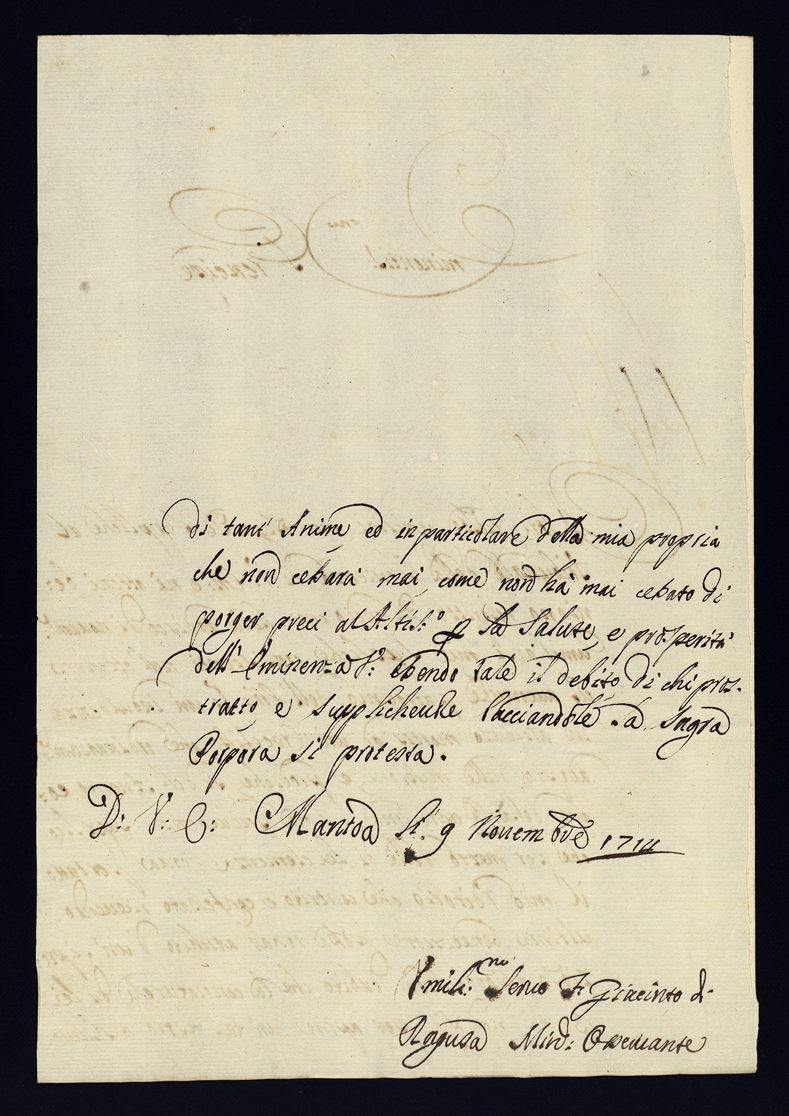 di tant' Anime ed in particolare della mia propria
che non cessarà mai, come non hà mai cessato di
porger preci al Altis.º p la salute, e prosperità
dell' Eminenza S.ª essendo tale il debito di chi pros-
tratto, e supplicheuole bacciandole la sagra
Porpora si protesta.
D: V: E: Mantoa li 9 Nouembre 1714
Vmili:mo Seruo Fr Giacinto di
Ragusa Min: Osseruante